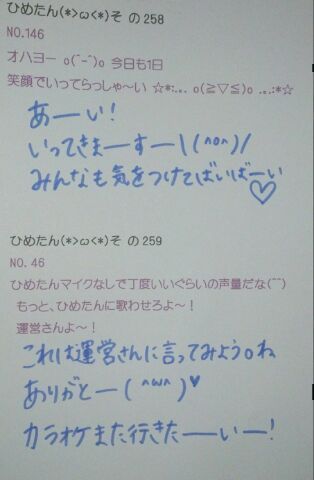 ひめたん(*>ω<*)そ の 258
NO.146
オハヨー o(^-^)o 今日も1日
笑顔でいってらっしゃ~い ☆*:... o(≧▽≦)o ...:*☆
あーい!
いってきまーすー\(^o^)/
みんなも気をつけてばいばーい♡
ひめたん(*>ω<*)そ の 259
NO. 46
ひめたんマイクなしで丁度いいぐらいの声量だな(⌒⌒)
もっと、ひめたんに歌わせろよ~!
運営さんよ~!
これは運営さんに言ってみようね
ありがとー(^ω^)♥
カラオケまた行きたーーいー!